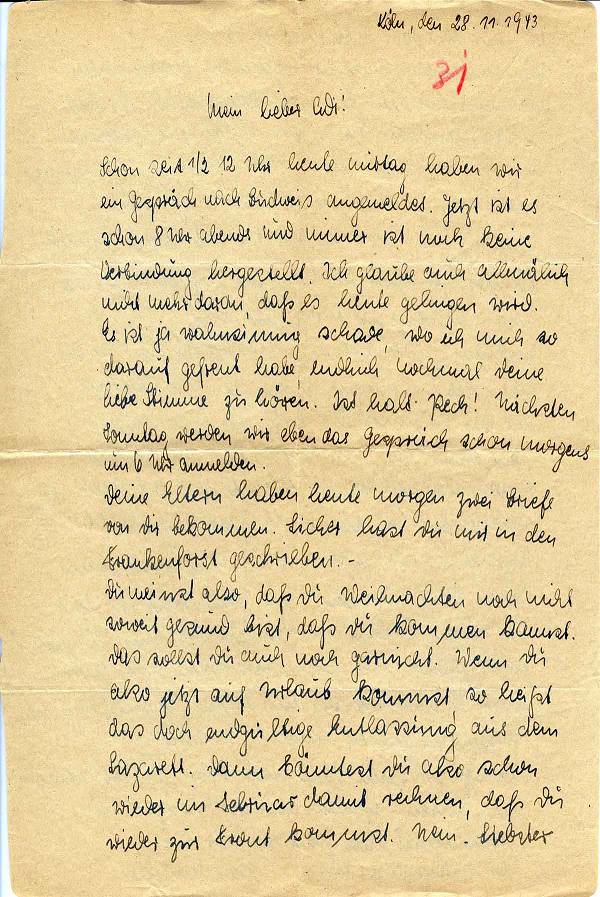 Köln, den 28.11.1943
31
Mein lieber Adi!
Schon seit 1/2 12 Uhr heute mittag haben wir
ein Gespräch nach Budweis angemeldet. Jetzt ist es
schon 8 Uhr abends und immer ist noch keine
Verbindung hergestellt. Ich glaube auch allmälich
nicht mehr daran, daß es heute gelingen wird.
Es ist ja wahnsinnig schade, wo ich mich so
darauf gefreut habe, endlich nochmal Deine
liebe Stimme zu hören. Ist halt Pech! Nächsten
Sonntag werden wir eben das Gespräch schon morgens
um 6 Uhr anmelden.
Deine Eltern haben heute morgen zwei Briefe
von Dir bekommen. Sicher hast Du mir in den
Frankenforst geschrieben. –
Du meinst also, daß Du Weihnachten noch nicht
soweit gesund bist, daß Du kommen kannst.
Das sollst Du auch noch garnicht. Wenn Du
also jetzt auf Urlaub kommst, so heißt
das doch endgültige Entlassung aus dem
Lazarett. Dann könntest Du also schon
wieder im Februar damit rechnen, daß Du
wieder zur Front kommst. Nein, Liebster